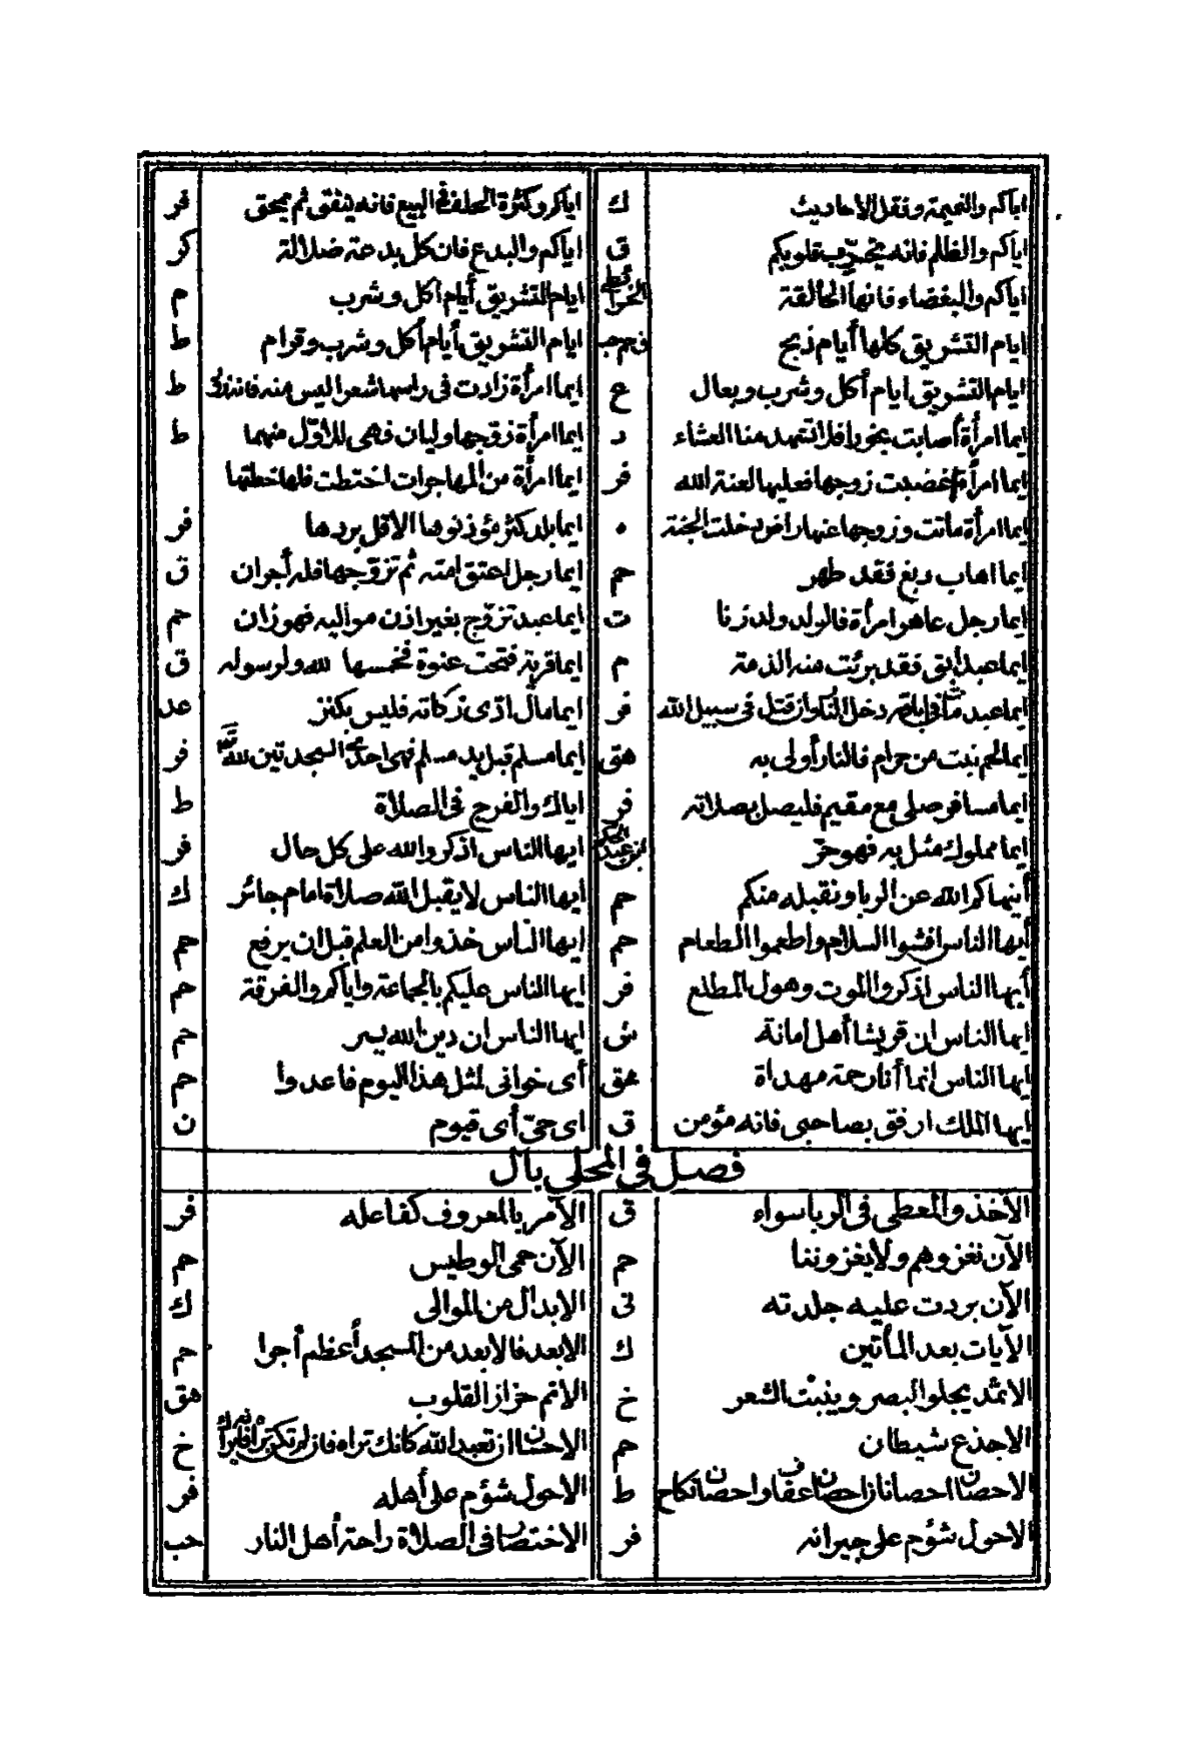 اياكم والنميمة ونقل الاحاديث ك اياكم وكثرة الحلف فى البيع فانه ينفق ثم يمحق فر
اياكم والظلم فانه يخرّب قلوبكم ق اياكم والبدع فان كل بدعة ضلالة كر
اياكم والبغضاء فانها الحالقة الخرائطى ايام التشريق أيام أكل وشرب م
ايام التشريق كلها أيام ذبح ايام التشريق أيام أكل وشرب وقرام ط
ايام التشريق أيام أكل وشرب وبعال ع ايما امرأة زادت فى راسها شعرا ليس منه فانه زور ط
ايما امرأة أصابت بخورا فلا تشهد منا العشاء د ايما امرأة زوّجها وليان فهى للاوّل منهما ط
ايما امرأة اغضبت زوجها فعليها لعنة الله فر ايما امرأة من المهاجرات اختطت فلها خطتها
ايما امرأة ماتت وزوجها عنها راض دخلت الجنة ه ايما بلد كثر مؤذنوها الا قل بردها فر
ايما اهاب دبغ فقد طهر حم ايما رجل اعتق امته ثم تزوّجها فله أجران ق
ايما رجل عاهر امرأة فالولد ولد زنا ت ايما عبد تزوّج بغير اذن مواليه فهو زان حم
ايما عبد أبق فقد برئت منه الذمة م ايما قرية فتحت عنوة فخمسها لله ولرسوله ق
ايما عبد مات فى اباقه دخل النار وان قتل فى سبيل الله فر ايما مال ادّى زكاته فليس بكنز عد
ايما لحم نبت من حرام فالنار أولى به هق ايما مسلم
ايما مسافر صلى مع مقيم فليصل بصلاته فر اياك والفرج فى الصلاة ط
ايما مملوك مثل به فهو حرّ ايها الناس اذكروا الله على كل حال فر
أينهاكم الله عن الربا ونقبله منكم حم ايها الناس لا يقبل الله صلاة امام جائر ك
أيها الناس افشوا السلام واطعموا الطعام حم ايها الناس خذوا من العلم قبل ان يرفع حم
أيها الناس اذكروا الموت وهول المطلع فر ايها الناس عليكم بالجماعة واياكم والفرقة حم
ايها الناس ان قريشا أهل امانة ش ايها الناس ان دين الله يسر حم
ايها الناس انما أنا رحمة مهداة هق أى خوانى لمثل هذا اليوم فاعدوا حم
ايها الملك ارفق بصاحبى فانه مؤمن ق اى حىّ أى قيوم ن
فصل فى المحلى بال
الآخذ والمعطى فى الربا سواء ق الآمر بالمعروف كفاعله فر
الآن نغزوهم ولا يغزوننا حم الآن حمى الوطيس حم
الآن بردت عليه جلدته قى الابدال من الموالى ك
الآيات بعد المأتين ك الابعد فالابعد من المسجد أعظم أجرا حم
الاثمد يجلو البصر وينبت الشعر خ الاثم حزاز القلوب هق
الاجذع شيطان حم الاحسان ان تعبد الله كانك تراه فان لم تكن تراه فانه يراك خ
الاحصان احصانان احصان عفاف واحصان نكاح ط الاحول شؤم على أهله فر
الاحول شؤم على جيرانه فر الاختصار فى الصلاة راحة أهل النار حب